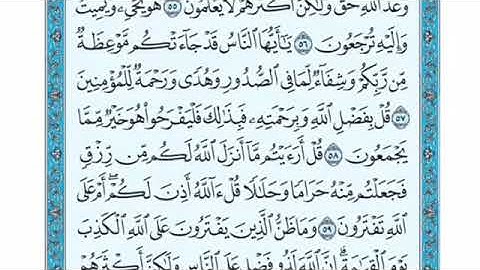 وَعْدَ ٱللَّهِ حَقٌّ وَلَٰكِنَّ أَكْثَرَهُمْ لَا يَعْلَمُونَ ٥٥ هُوَ يُحْىِۦ وَيُمِيتُ
وَإِلَيْهِ تُرْجَعُونَ ٥٦ يَٰٓأَيُّهَا ٱلنَّاسُ قَدْ جَآءَتْكُم مَّوْعِظَةٌ
مِّن رَّبِّكُمْ وَشِفَآءٌ لِّمَا فِى ٱلصُّدُورِ وَهُدًى وَرَحْمَةٌ لِّلْمُؤْمِنِينَ
٥٧ قُلْ بِفَضْلِ ٱللَّهِ وَبِرَحْمَتِهِۦ فَبِذَٰلِكَ فَلْيَفْرَحُوا۟ هُوَ خَيْرٌ مِّمَّا
يَجْمَعُونَ ٥٨ قُلْ أَرَءَيْتُم مَّآ أَنزَلَ ٱللَّهُ لَكُم مِّن رِّزْقٍ
فَجَعَلْتُم مِّنْهُ حَرَامًا وَحَلَٰلًا قُلْ ءَآللَّهُ أَذِنَ لَكُمْ ۖ أَمْ عَلَى
ٱللَّهِ تَفْتَرُونَ ٥٩ وَمَا ظَنُّ ٱلَّذِينَ يَفْتَرُونَ عَلَى ٱللَّهِ ٱلْكَذِبَ
يَوْمَ ٱلْقِيَٰمَةِ ۗ إِنَّ ٱللَّهَ لَذُو فَضْلٍ عَلَى ٱلنَّاسِ وَلَٰكِنَّ أَكْثَرَهُمْ